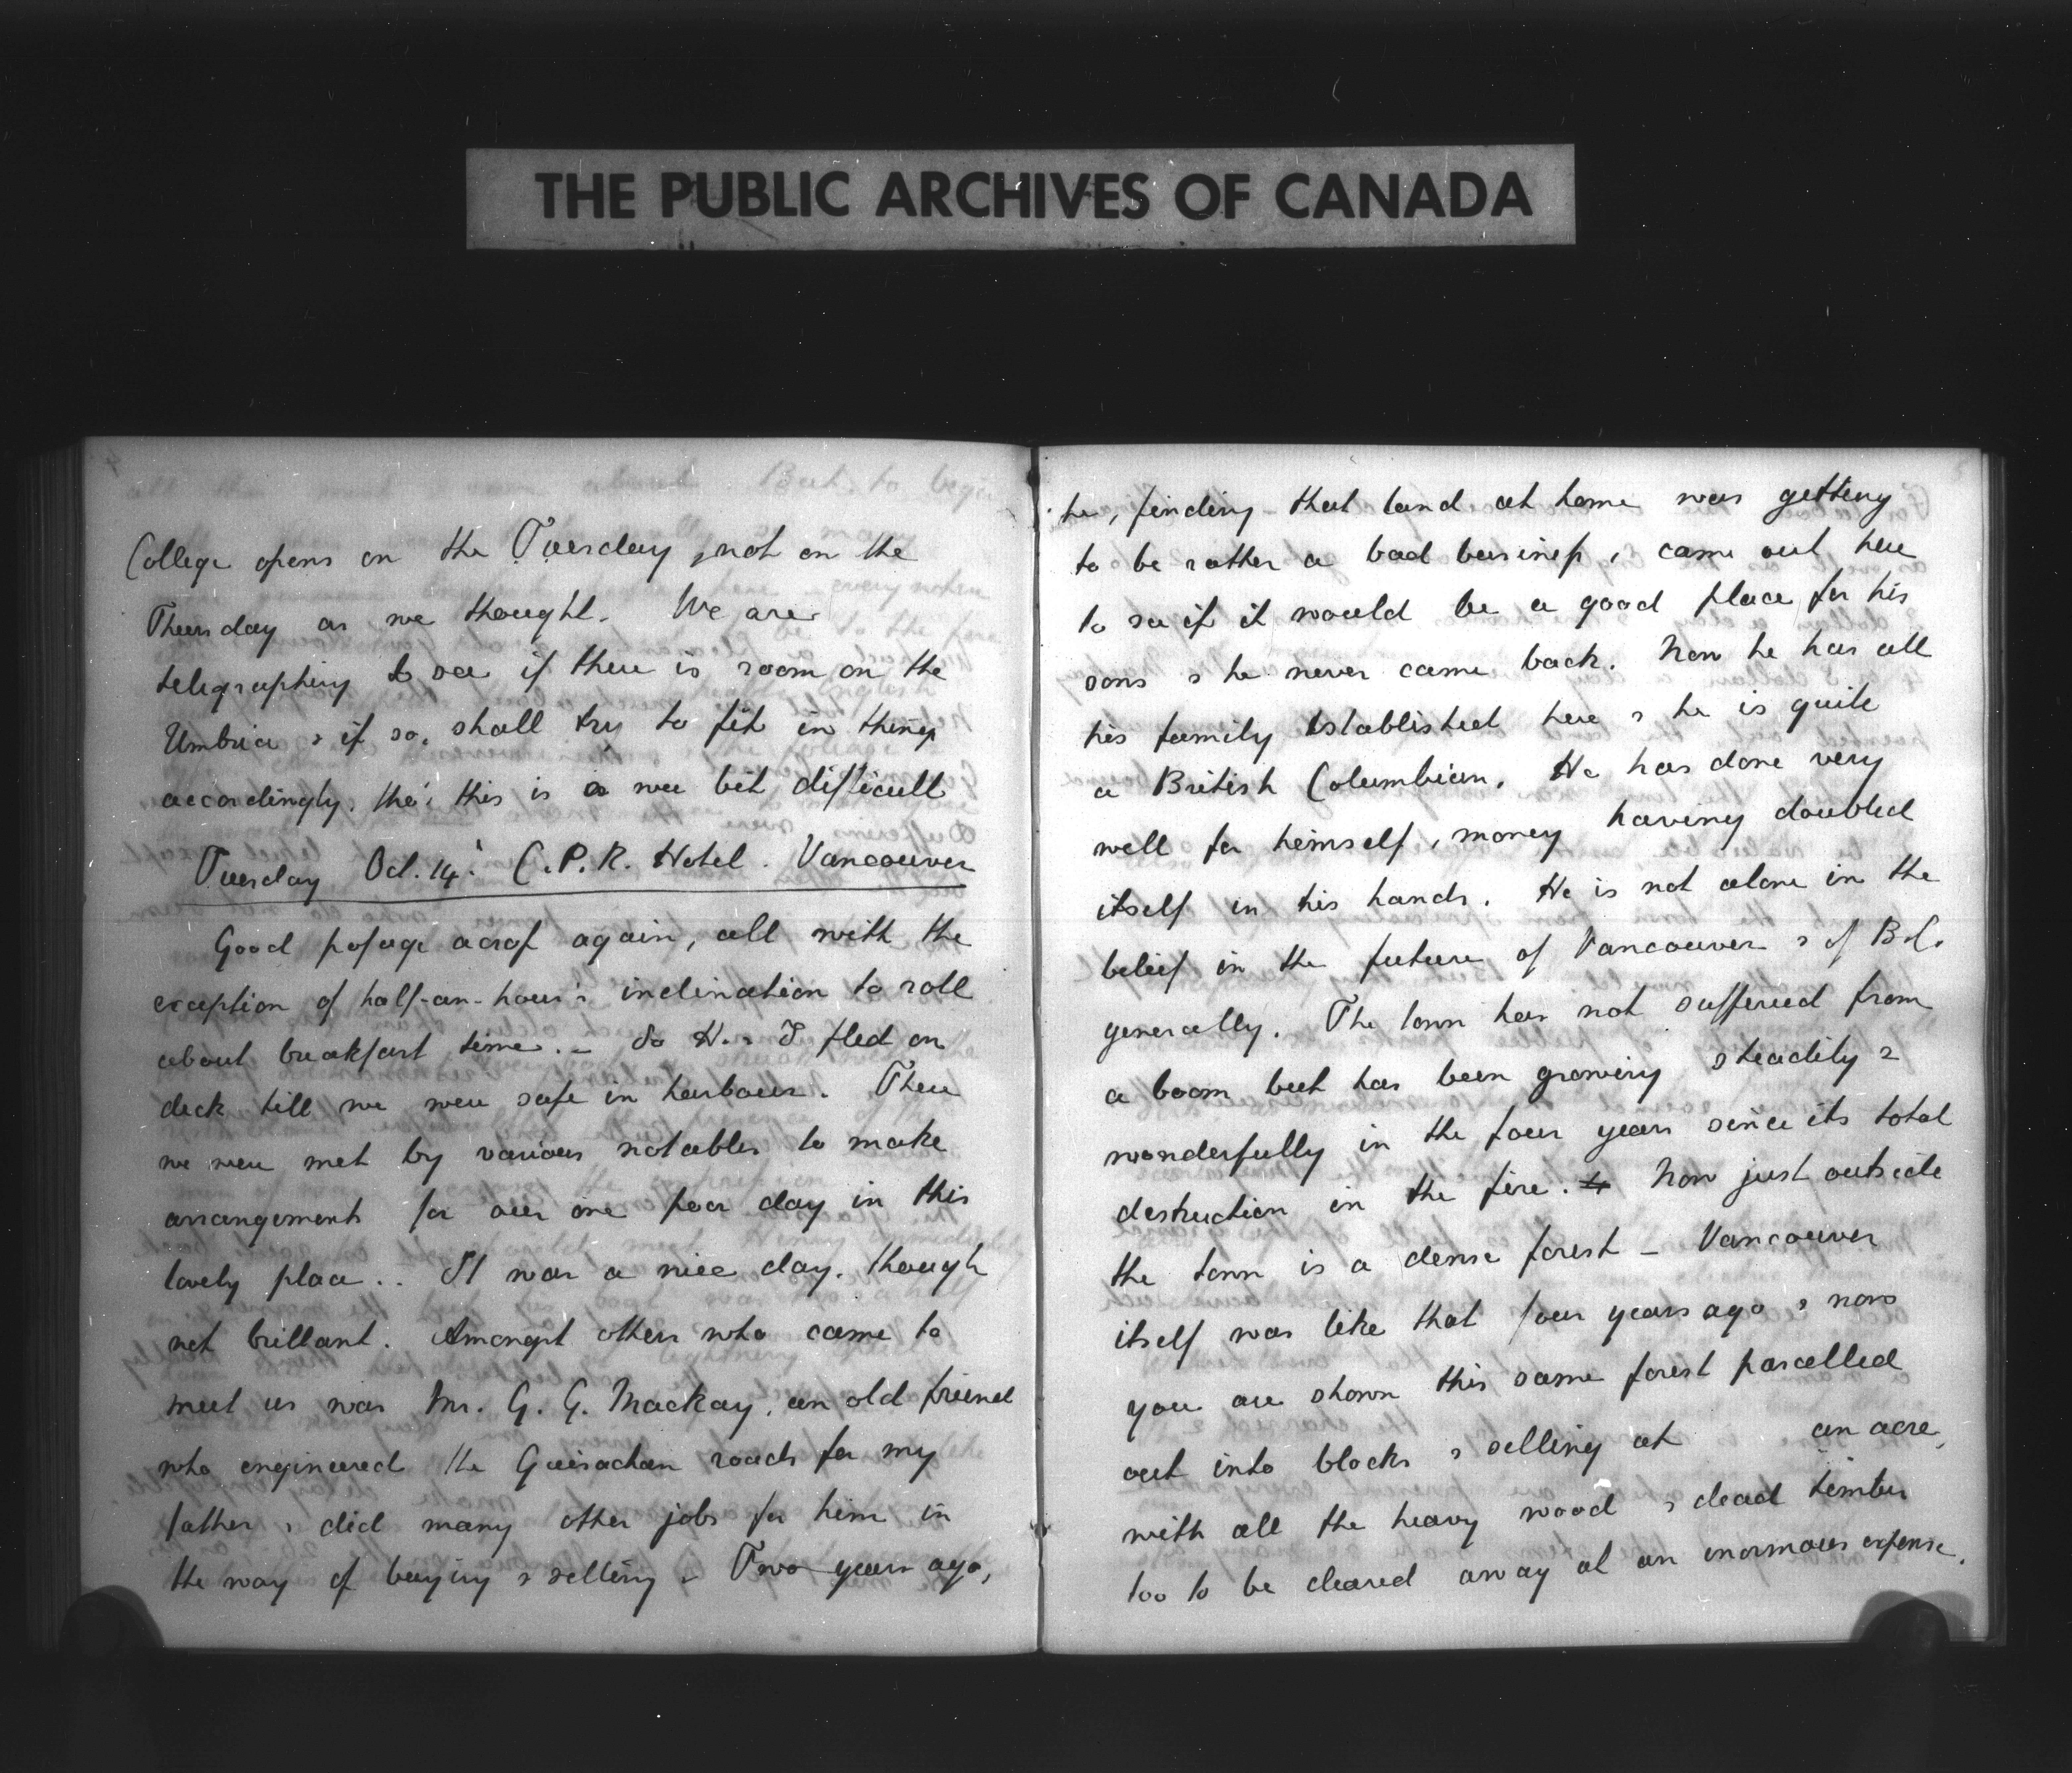 THE PUBLIC ARCHIVES OF CANADA
College opens on the Tuesday, not on the
Thursday as we thought. We are
telegraphing to see if there is room on the
Umbria & if so, shall try to fit in things
accordingly, tho' this is a wee bit difficult
Tuesday Oct. 14. C.P.R. Hotel. Vancouver
Good passage across again, all with the
exception of half-an-hour's inclination to roll
about breakfast time. – So H. & I fled on
deck till we were safe in harbour. There
we were met by various notables to make
arrangements for our one poor day in this
lovely place.. It was a nice day, though
not brillant. Amongst others who came to
meet us was Mr. G. G. Mackay, an old friend
who engineered the Guisachan roads for my
father & did many other jobs for him in
the way of buying & selling – Two years ago,
he, finding that land at home was getting
to be rather a bad business, came out here
to see if it would be a good place for his
sons & he never came back. Now he has all
his family established here & he is quite
a British Columbian. He has done very
well for himself, money having doubled
itself in his hands. He is not alone in the
belief in the future of Vancouver & of B.C.
generally. The town has not suffered from
a boom but has been growing steadily &
wonderfully in the four years since its total
destruction in the fire. Now just outside
the town is a dense forest – Vancouver
itself was like that four years ago & now
you are shown this same forest parcelled
out into blocks & selling at an acre,
with all the heavy wood & dead timber
too to be cleared away at an enormous expense.